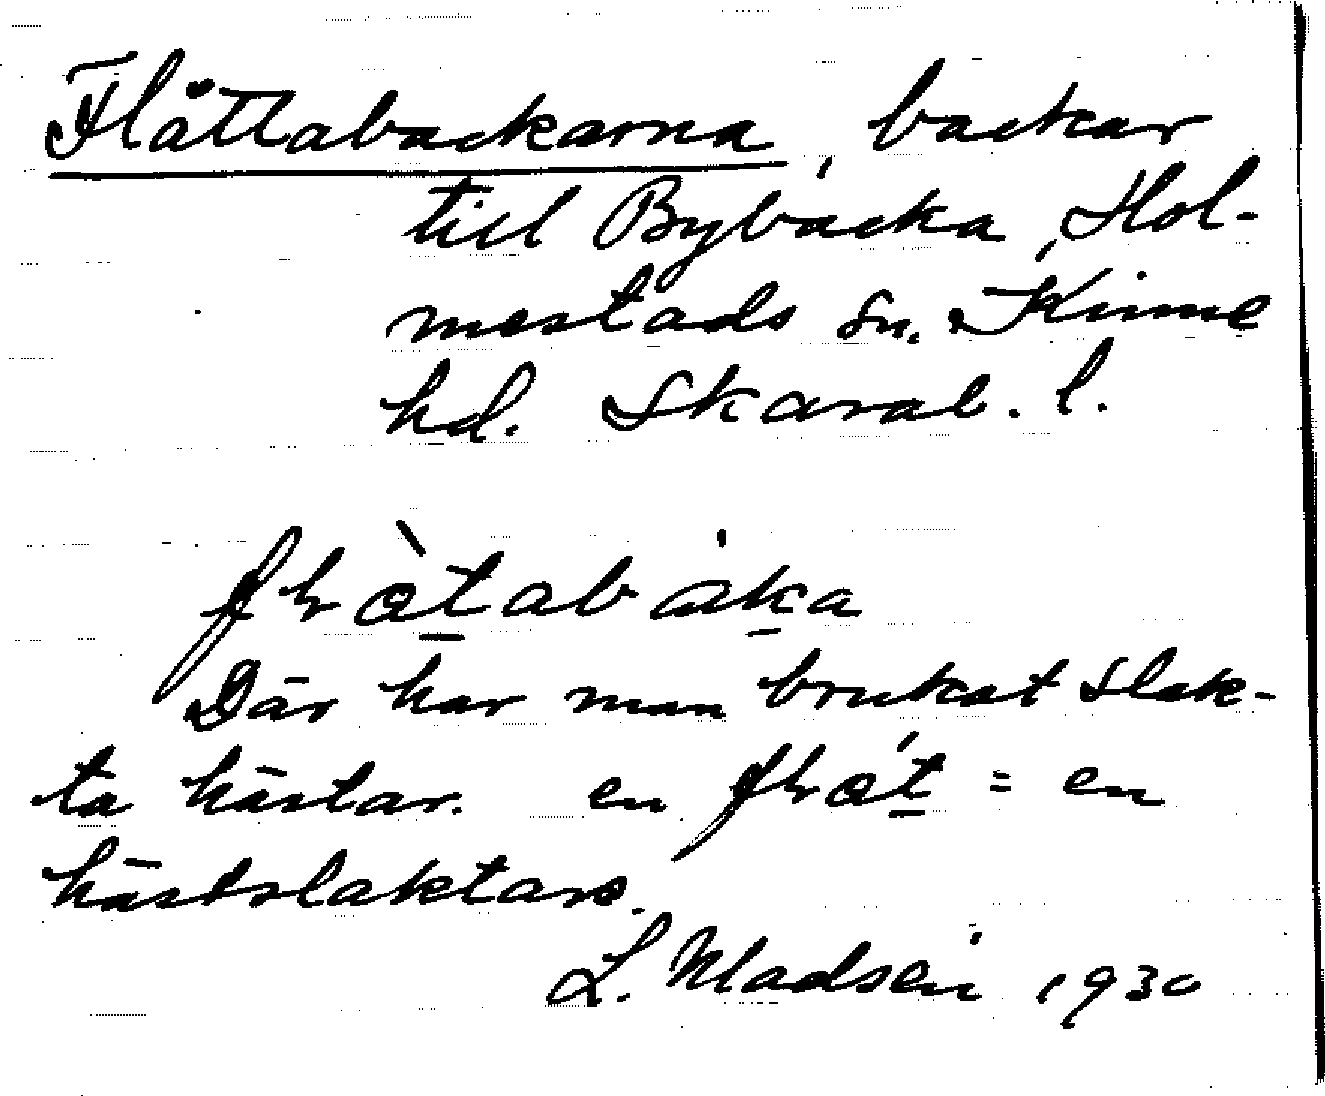 Flåttabackarna, backar
till Bybacka, Hol-
mestads sn. Kinne
hd. Skarab. l.
Där har man brukat slak-
ta hästar. en = en
hästslaktare.
L. Madsén 1930